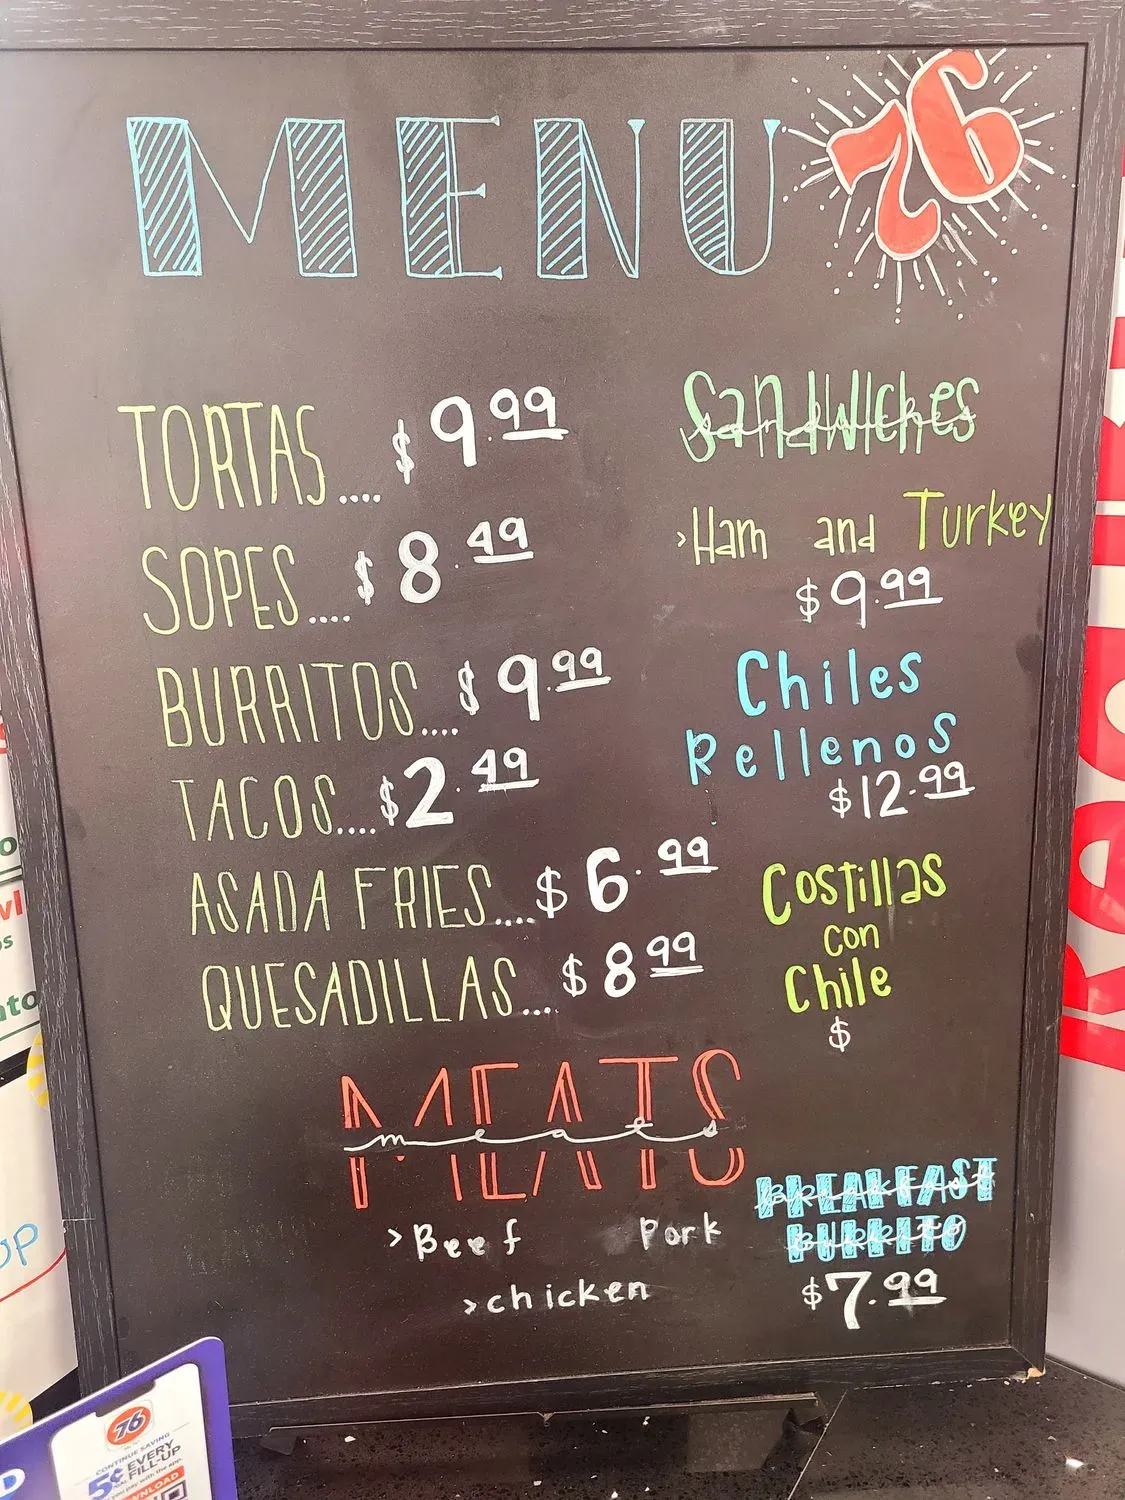 MENU
76
TORTAS.... $9.99
SOPES.... $8.49
BURRITOS.... $9.99
TACOS.... $2.49
ASADA FRIES.... $6.99
QUESADILLAS... $8.99
Sandwiches
sandwiches
>Ham and Turkey
$9.99
Chiles
Rellenos
$12.99
Costillas
con
Chile
$
MEATS
meats
>Beef Pork
>chicken
BREAKFAST
Breakfast
BURRITO
Burrito
$7.99
76
CONTINUE SAVING
5¢ EVERY
FILL-UP